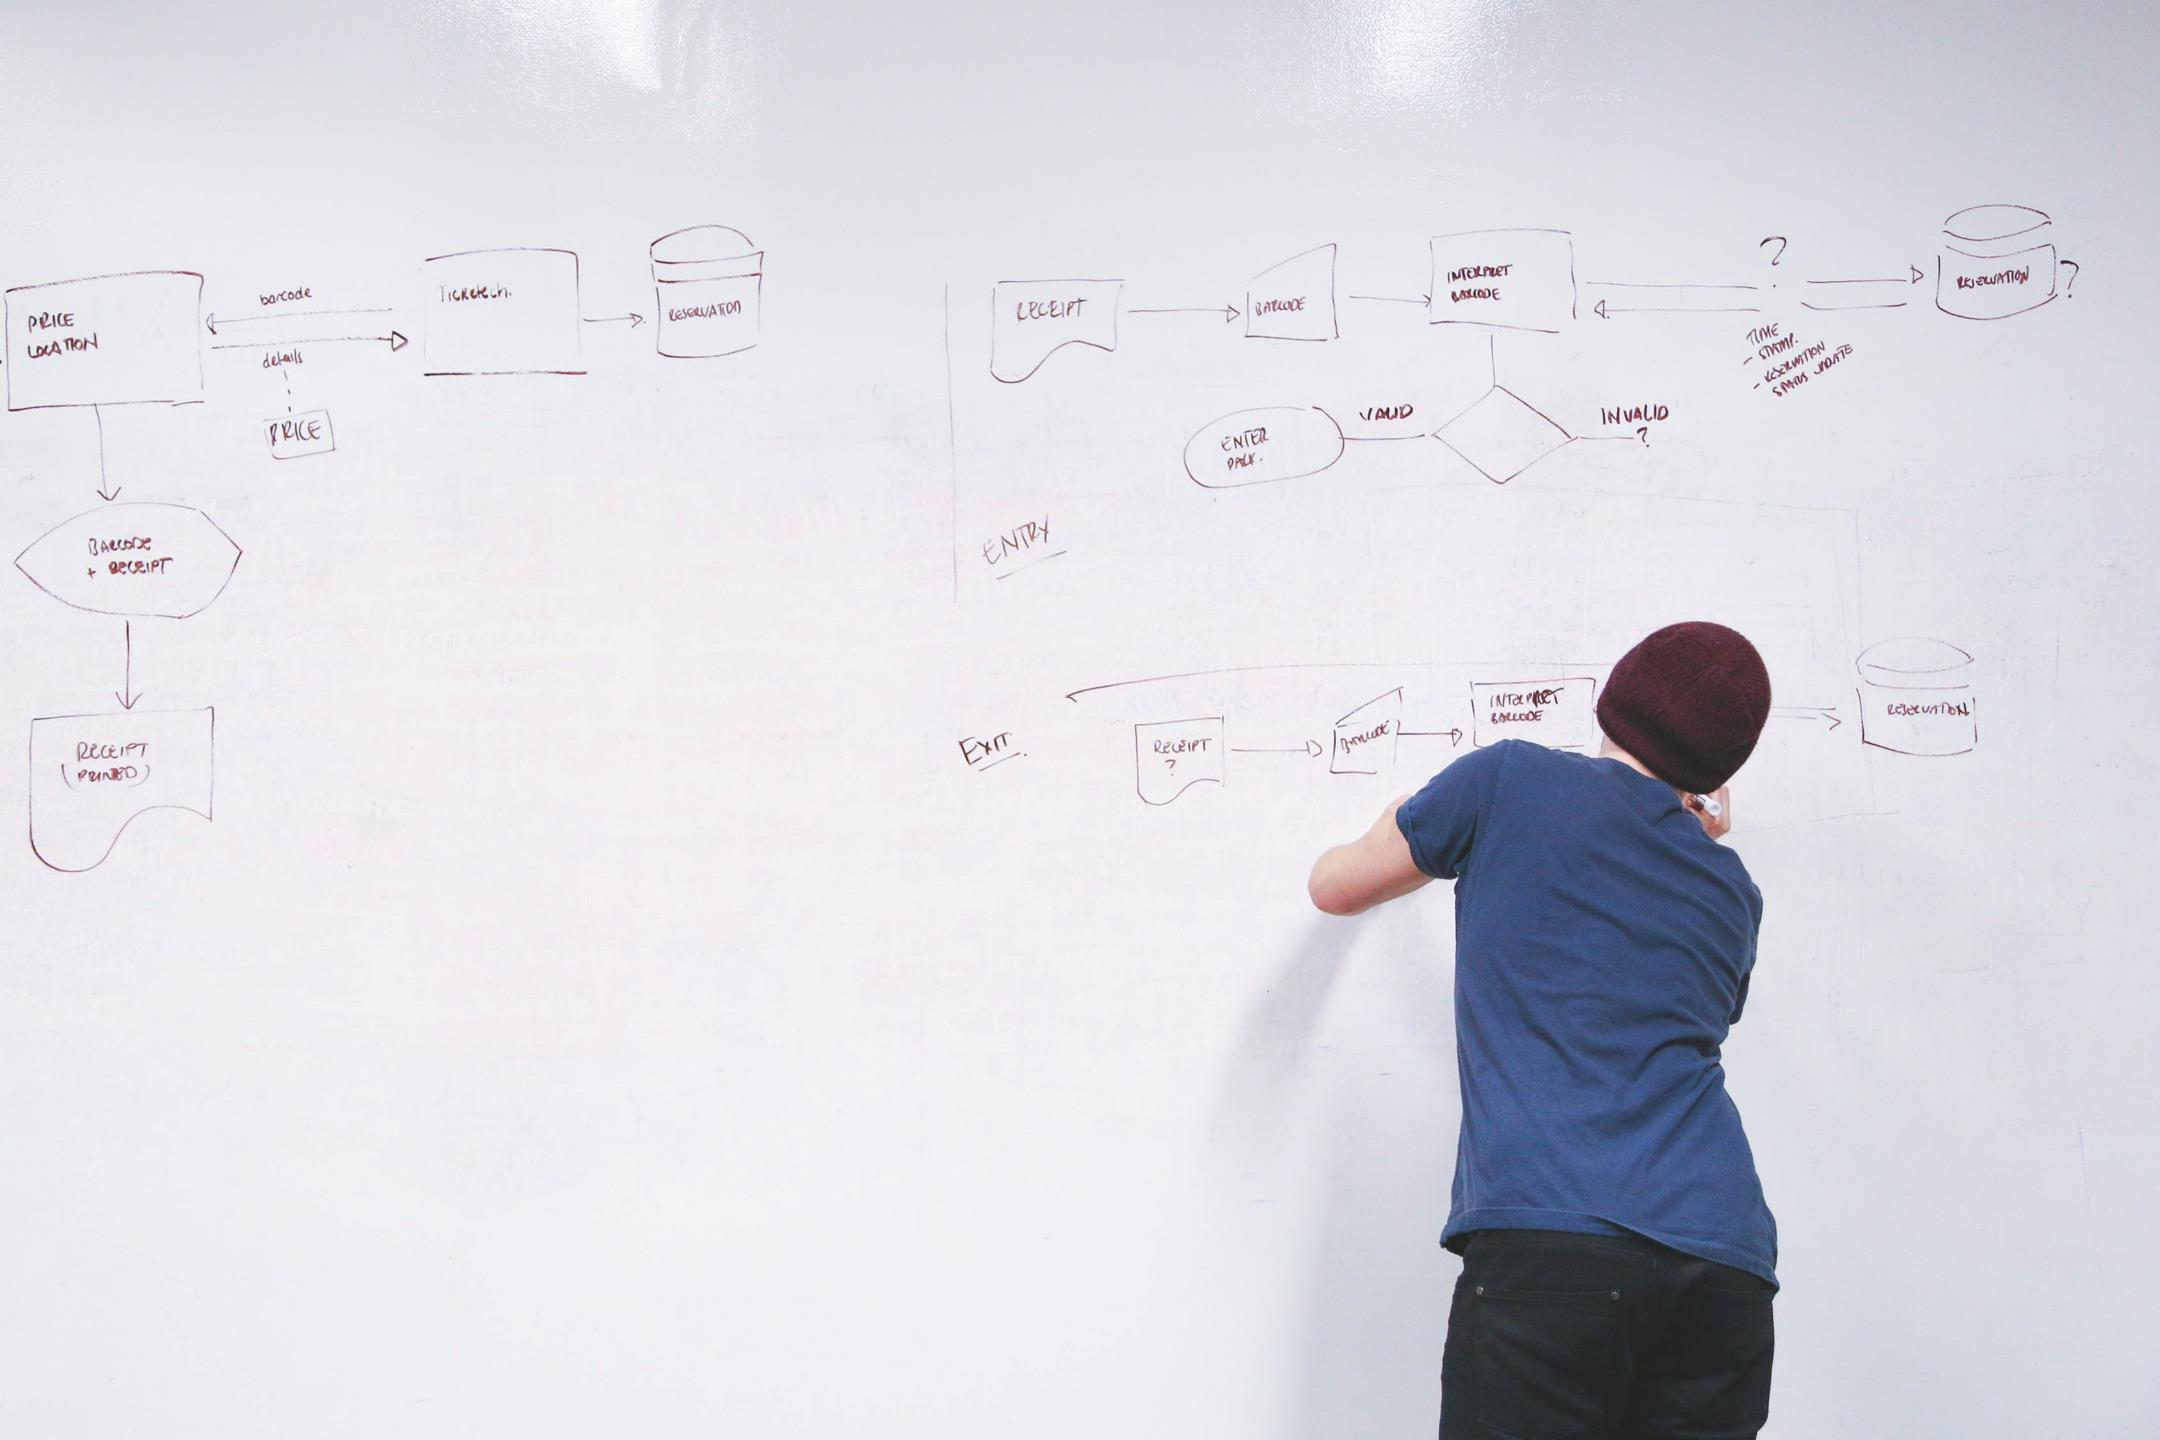 PRICE
LOCATION
barcode
details
PRICE
Ticketech.
RESERVATION
BARCODE
+ RECEIPT
RECEIPT
(PRINTED)
RECEIPT
BARCODE
INTERPRET
BARCODE
?
TIME
- STAMP.
- RESERVATION
STATUS UPDATE
RESERVATION
?
VALID
INVALID
?
ENTER
PARK.
ENTRY
EXIT.
RECEIPT
?
BARCODE
INTERPRET
BARCODE
RESERVATION